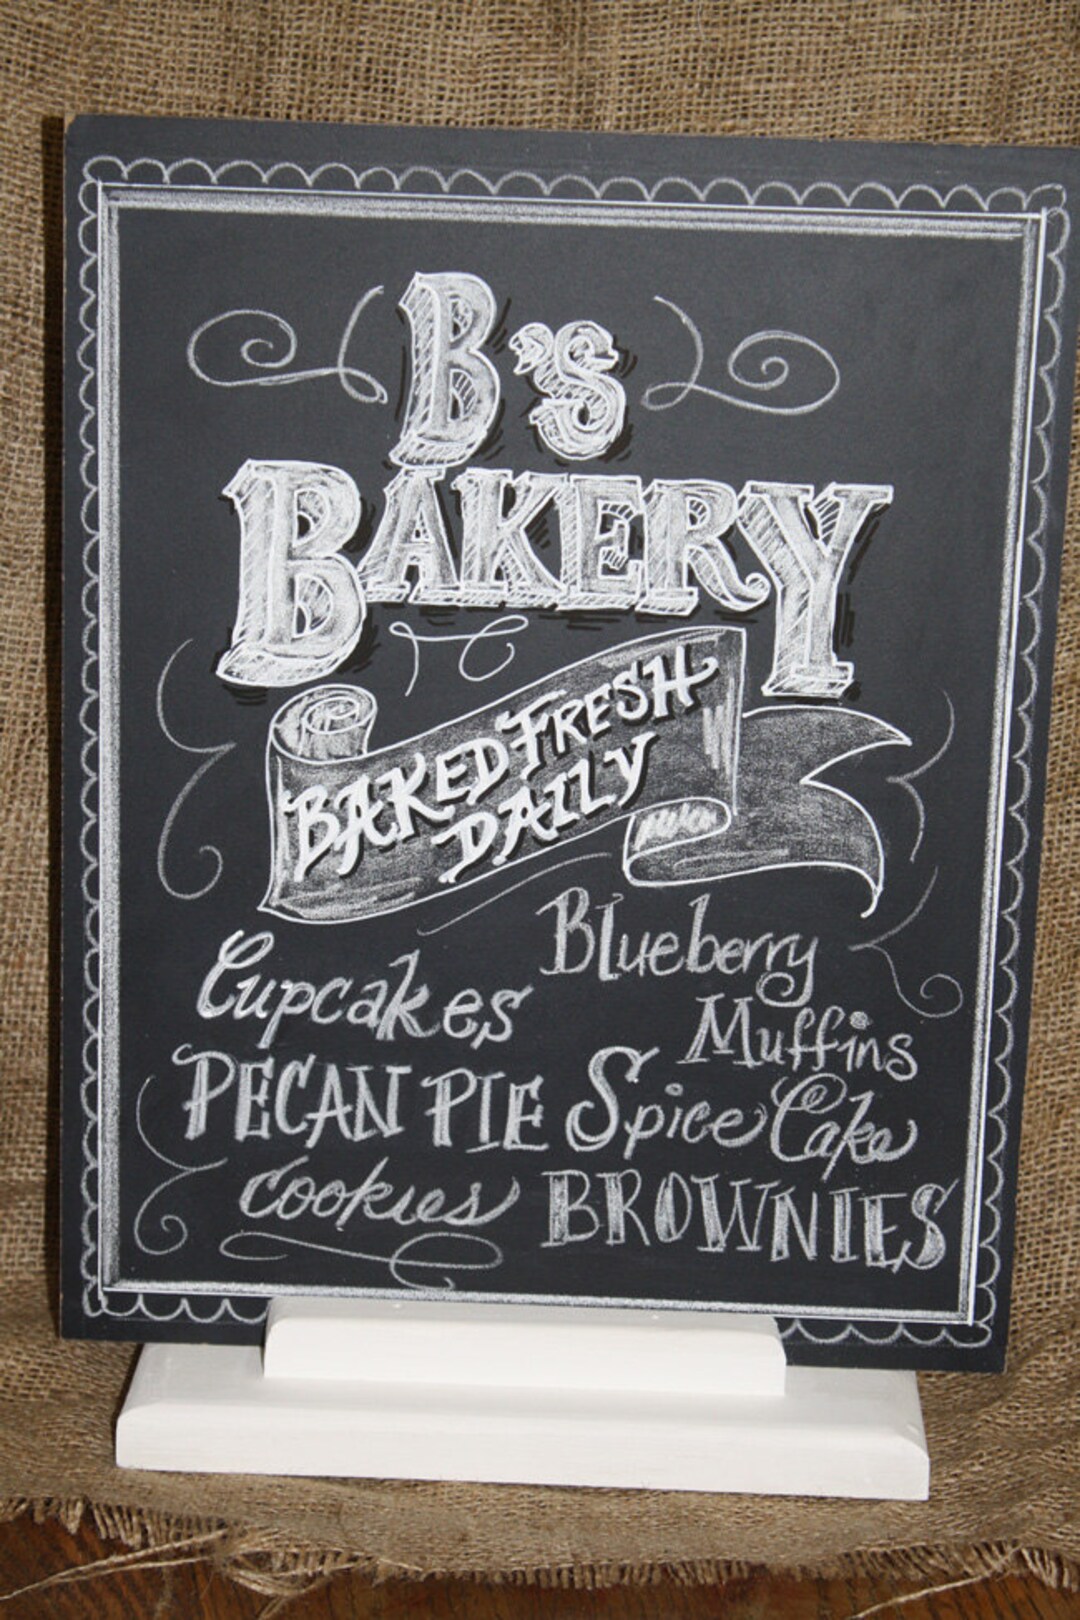 B's
BAKERY
BAKED FRESH
DAILY
Blueberry
Muffins
Cupcakes
PECAN PIE
Spice Cake
Cookies
BROWNIES